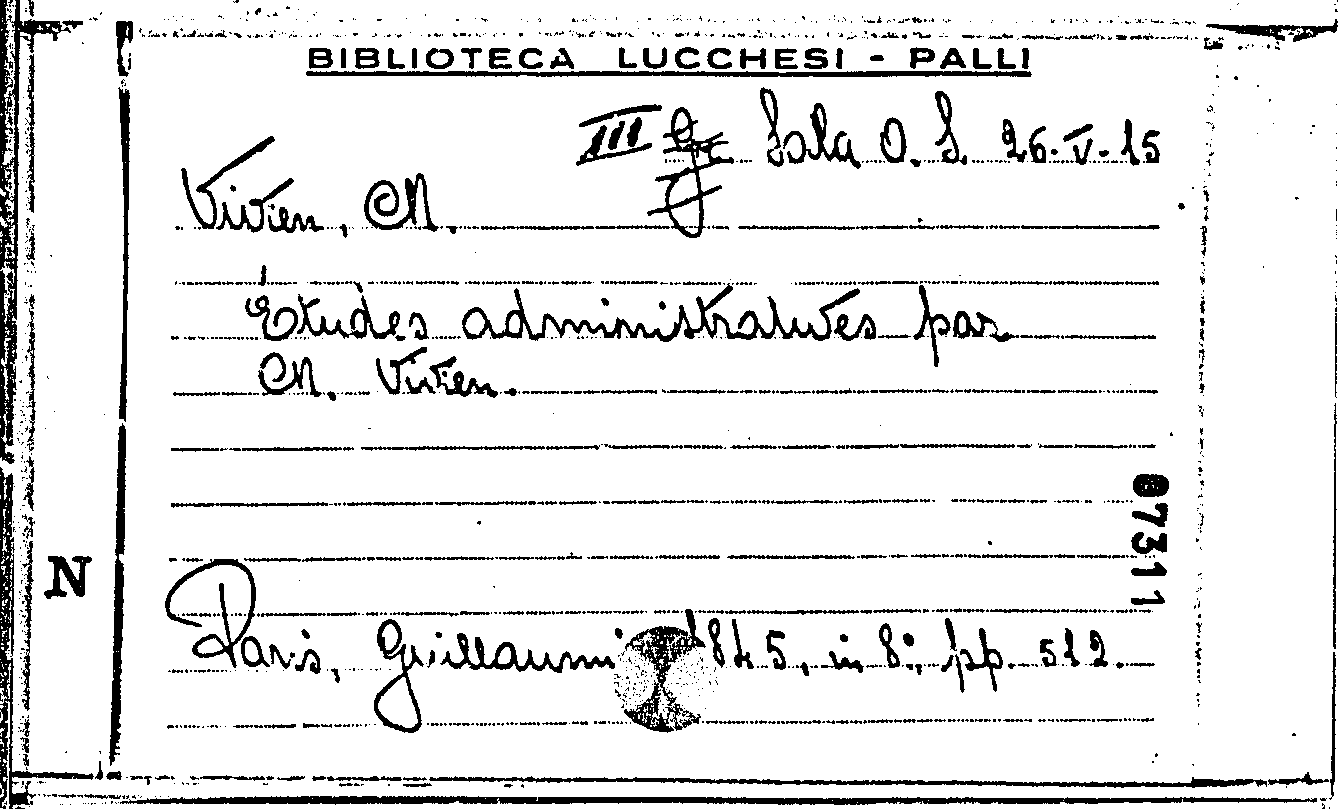 BIBLIOTECA LUCCHESI - PALLI
III Sala O. S. 26-V-15
Vivien, M.
Études administratives par
M. Vivien.
07311
N
Paris, Guillaumi 1845, in 8°, pp. 512.